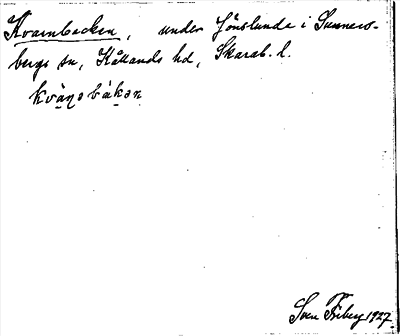 Kvarnbacken, under Jönslunda i Sunners-
bergs sn, Kållands hd, Skarab. l.
kvàṇabàkən
Sven Friberg 1927.